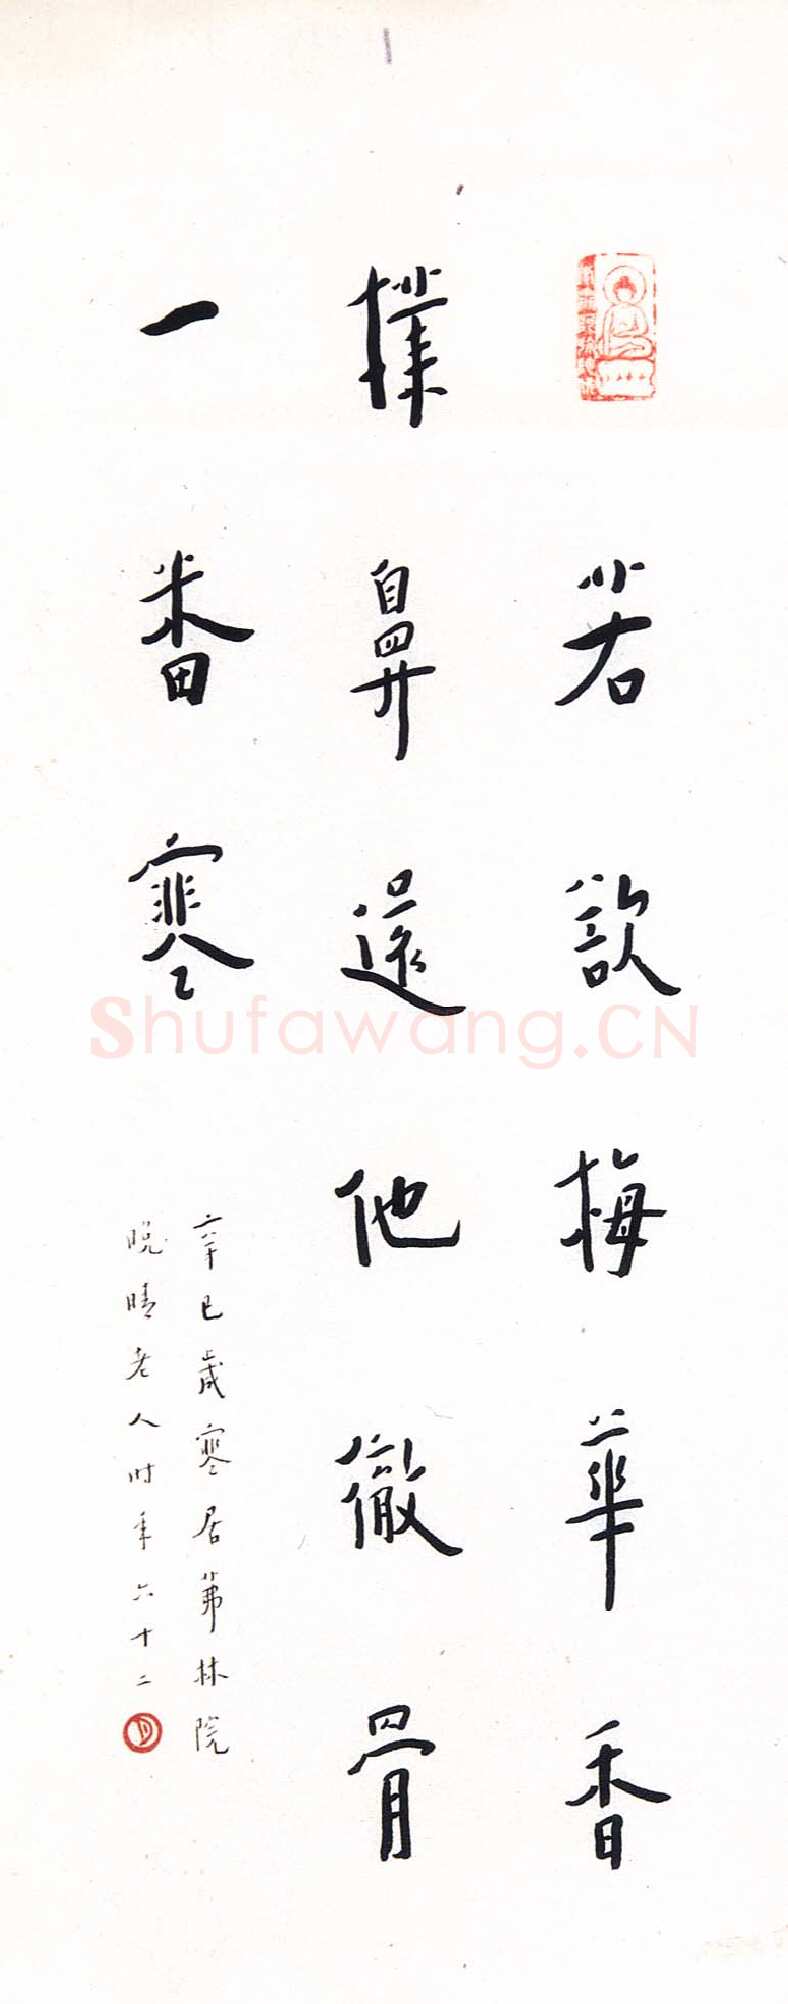 若欲梅華香
撲鼻還他徹骨
一番寒
辛巳歲寒居茀林院
晚晴老人時年六十二
Shufawang.CN